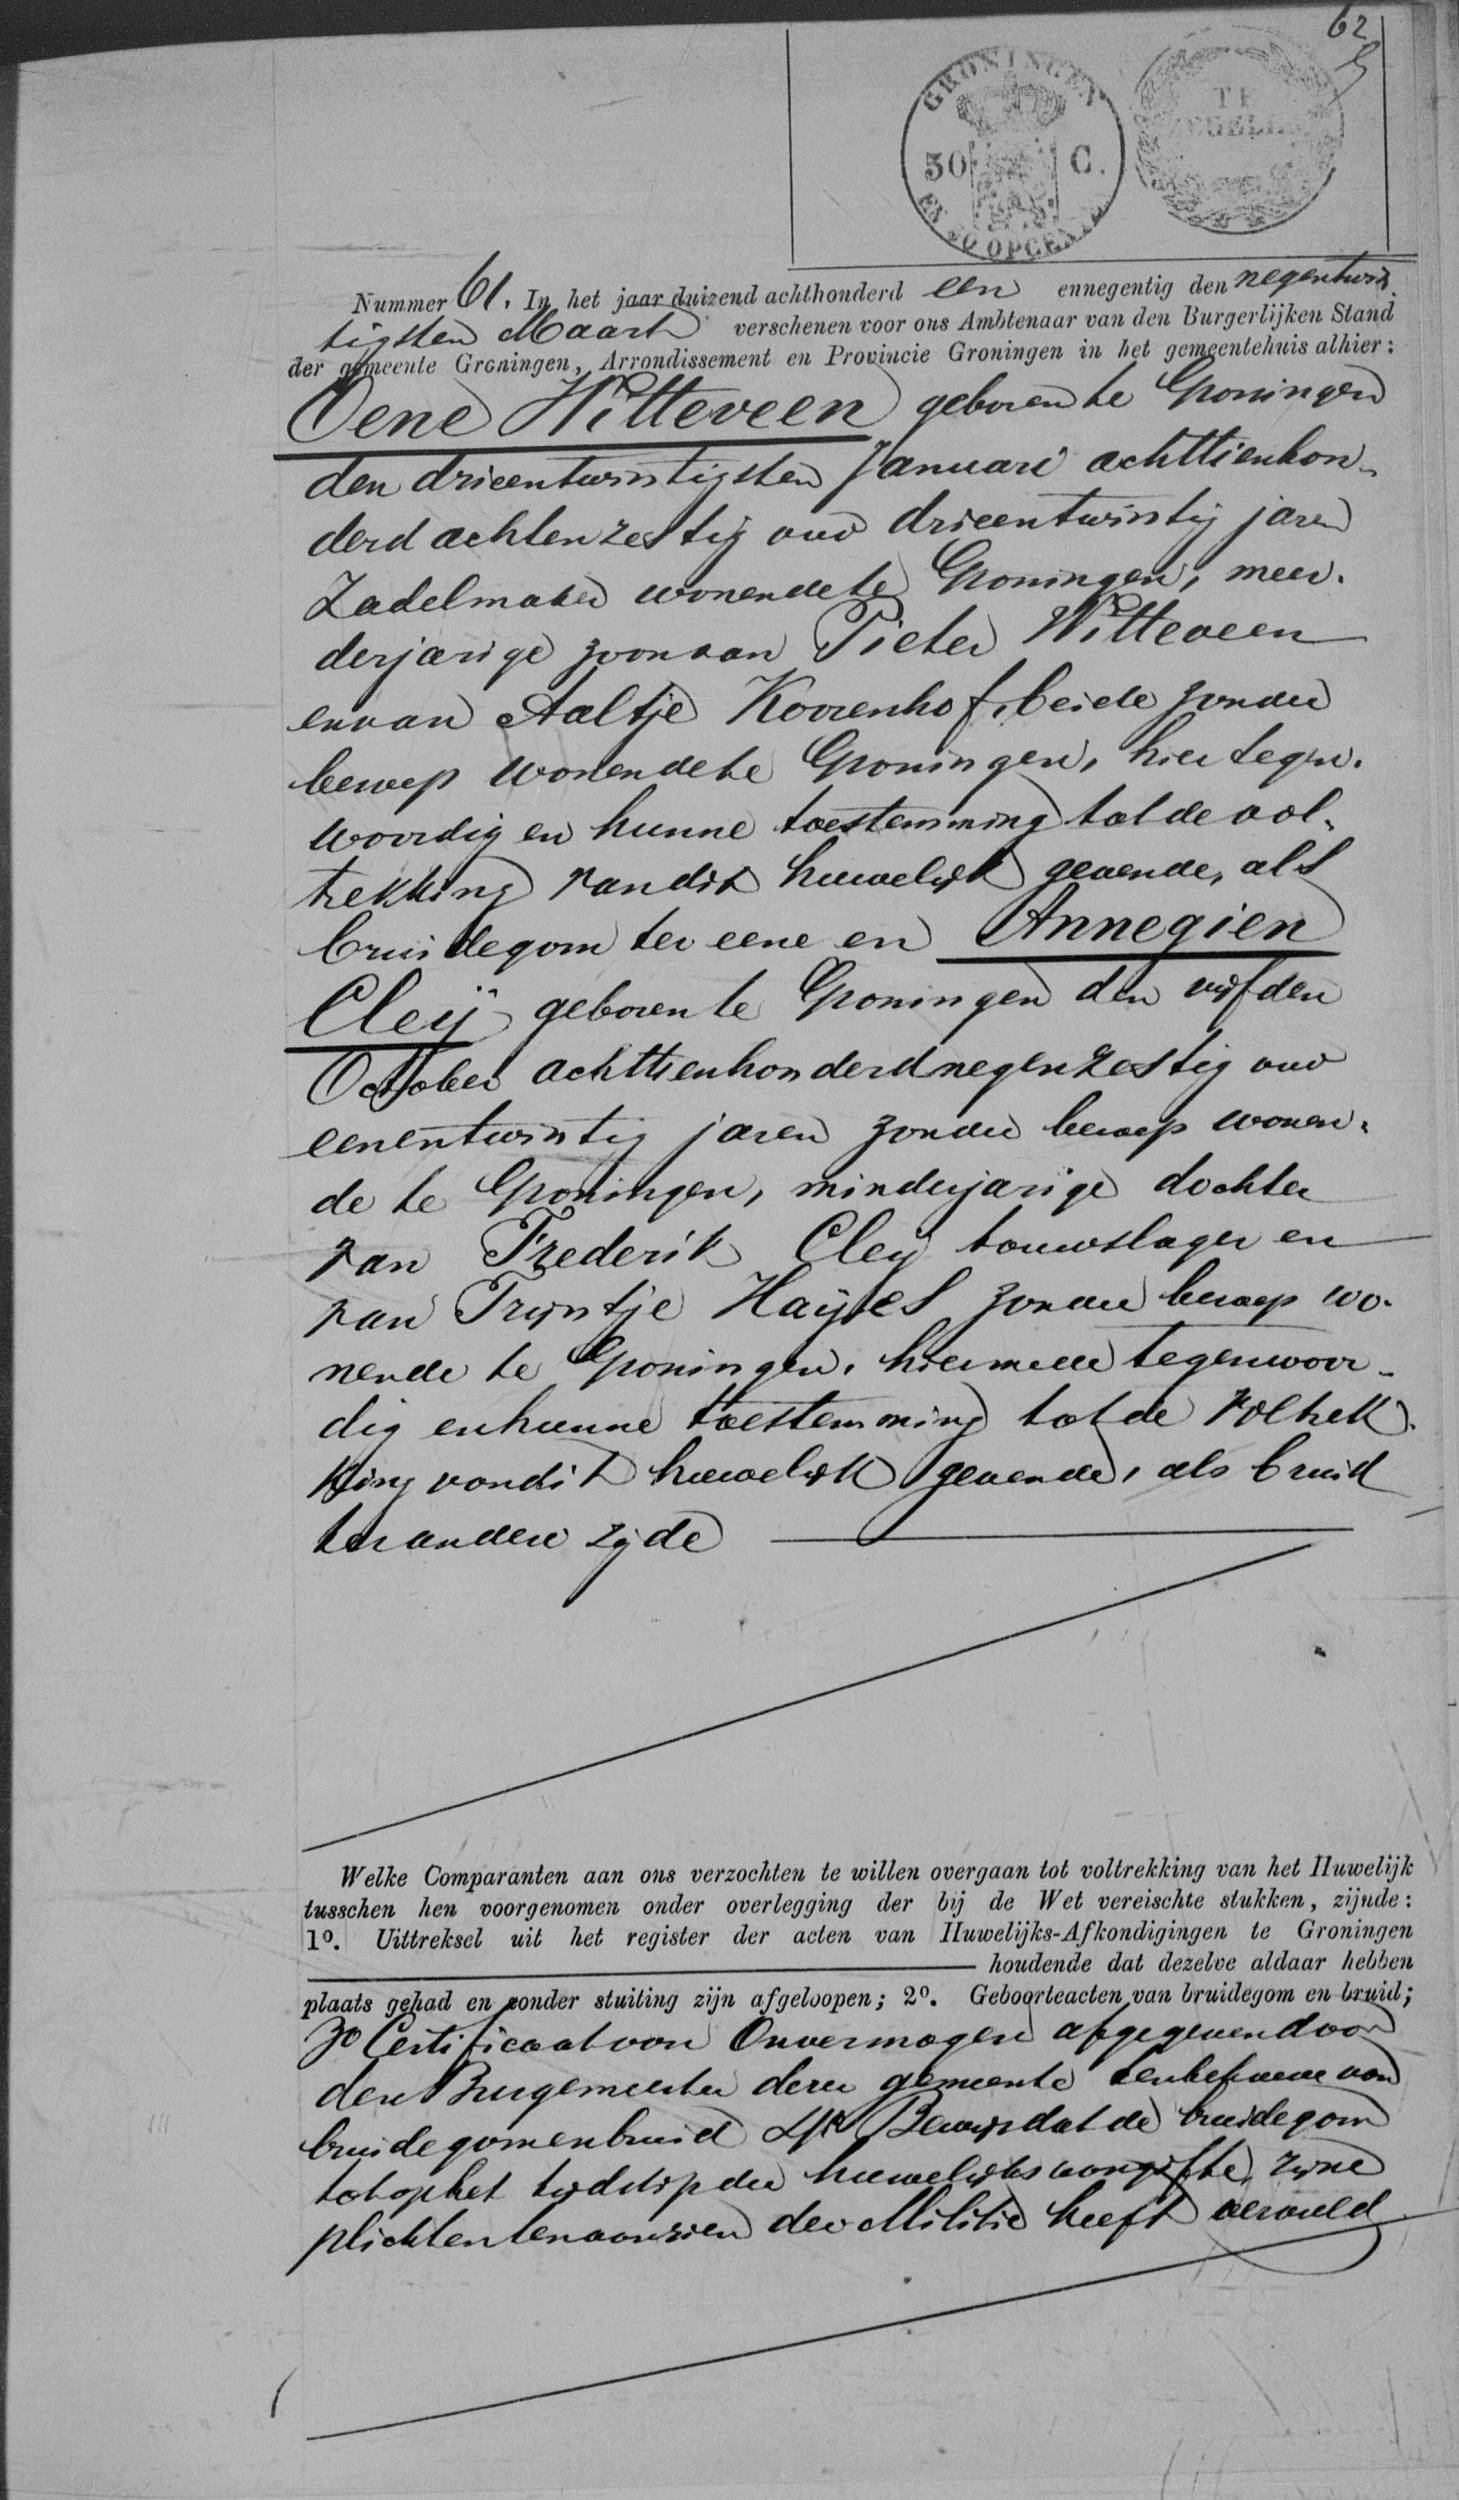 62
GRONINGEN
50 C.
EN 40 OPCENTEN
TE
ZEGELEN
Nummer 61. In het jaar duizend achthonderd een ennegentig den negentwin
tigsten Maart verschenen voor ons Ambtenaar van den Burgerlijken Stand
der gemeente Groningen, Arrondissement en Provincie Groningen in het gemeentehuis alhier:
Oene Witteveen geboren te Groningen
den drieentwintigsten Januari achttienhon-
derd achtenzestig oud drieentwintig jaren
Zadelmaker wonende te Groningen, meer-
derjarige zoon van Pieter Witteveen
en van Aaltje Korrenhof, beide zonder
beroep wonende te Groningen, hier tegen-
woordig en hunne toestemming tot de vol-
trekking van dit huwelijk gevende, als
bruidegom ter eene en Annegien
Cleij geboren te Groningen den vijfden
October achttienhonderdnegenzestig oud
eenentwintig jaren zonder beroep wonen-
de te Groningen, minderjarige dochter
van Frederik Cleij touwslager en
van Trijntje Haijes zonder beroep wo-
nende te Groningen, hiermede tegenwoor-
dig en hunne toestemming tot de voltrek-
king van dit huwelijk gevende, als bruid
ter andere zijde
Welke Comparanten aan ons verzochten te willen overgaan tot voltrekking van het Huwelijk
tusschen hen voorgenomen onder overlegging der bij de Wet vereischte stukken, zijnde:
1o. Uittreksel uit het register der acten van Huwelijks-Afkondigingen te Groningen
houdende dat dezelve aldaar hebben
plaats gehad en zonder stuiting zijn afgeloopen; 2o. Geboorteacten van bruidegom en bruid;
3o Certificaat van Onvermogen afgegeven door
den Burgemeester dezer gemeente ten behoeve van
bruidegom en bruid 4o Bewijs dat de bruidegom
tot op het tijdstip der huwelijksaangifte, zijne
plichten ten aanzien der Militie heeft vervuld